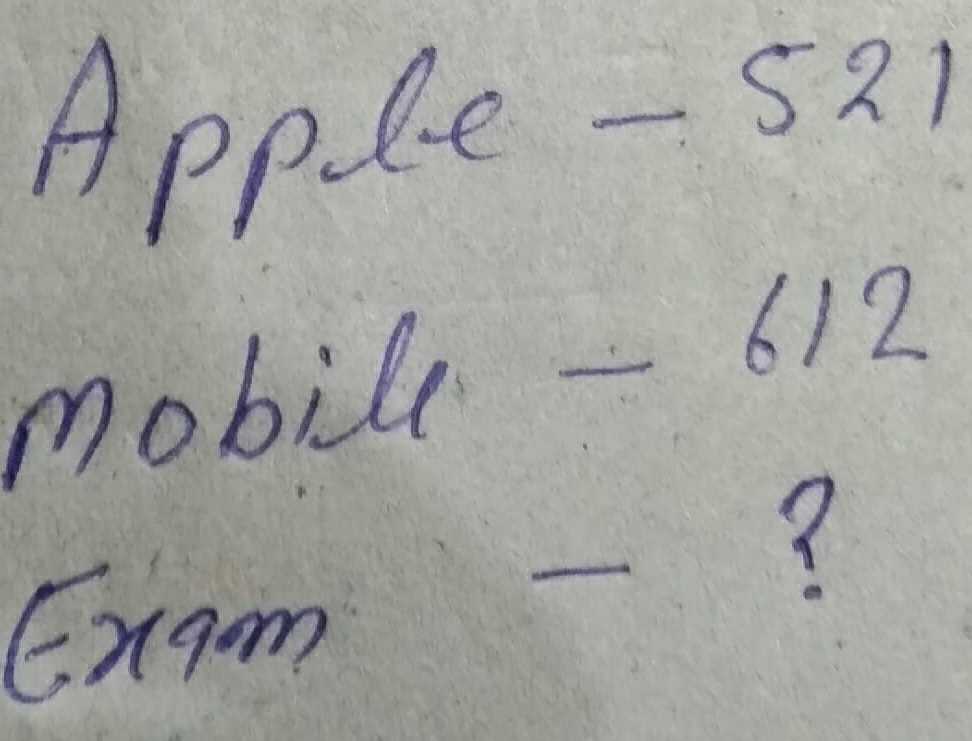 Apple - 521
mobile - 612
Exam - ?